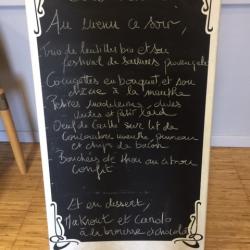 Au menu ce soir,
de lentilles bio et son
festival de saveurs provençale
Courgettes en bouquet et son
chèvre à la menthe
- Petites madeleines, olives
vertes et
- Oeuf de caille sur lit de
concombre menthe, pruneau
et chips de bacon
- Bouchées de thon au citron
confit
Et en dessert,
Makrout et
à la mousse chocolat